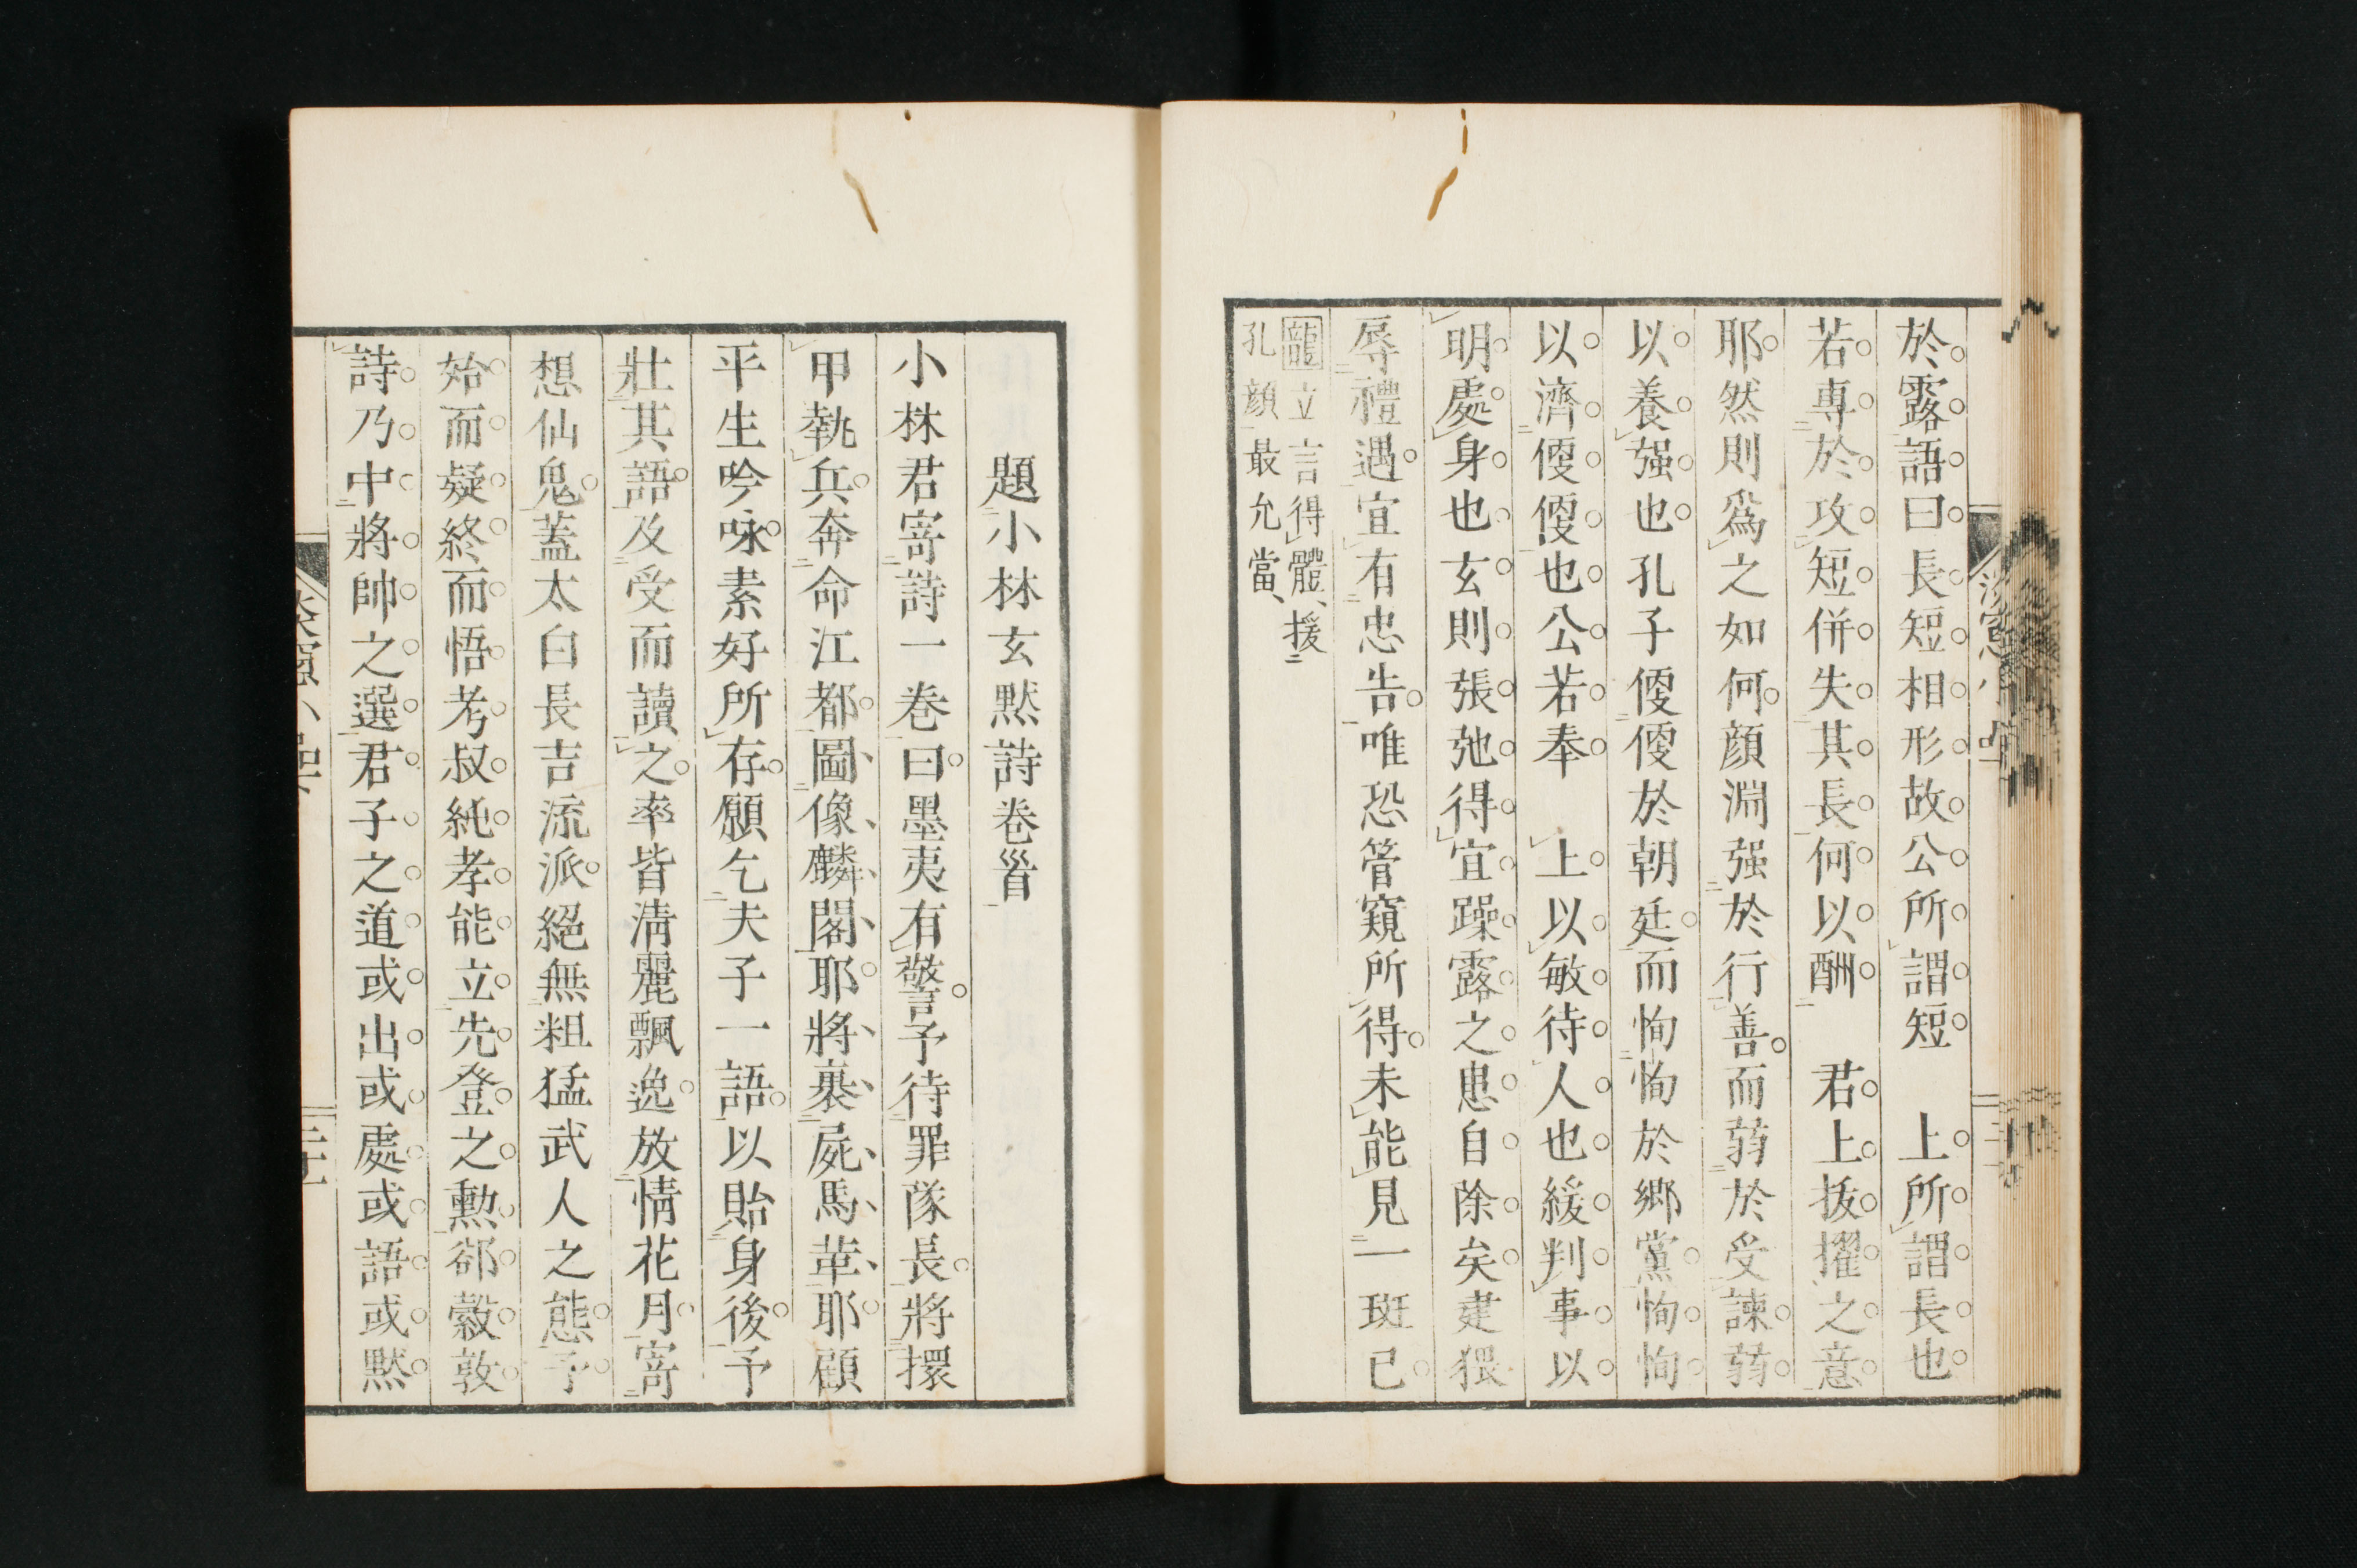 於露語曰長短相形故公所謂短　上所謂長也
若專於攻短併失其長何以酬　君上拔擢之意
耶然則爲之如何顏淵强於行善而弱於受諫弱
以養强也孔子便便於朝廷而恂恂於鄕黨恂恂
以濟便便也公若奉　上以敏待人也緩判事以
明處身也玄則張弛得宜躁露之患自除矣建猥
辱禮遇宜有忠告唯恐管窺所得未能見一斑已
龍立言得體、援
孔顏最允當、
題小林玄默詩卷首
小林君寄詩一卷曰墨夷有警予待罪隊長將擐
甲執兵奔命江都圖像麟閣耶將裹屍馬革耶顧
平生吟咏素好所存願乞夫子一語以貽身後予
壯其語及受而讀之率皆淸麗飄逸放情花月寄
想仙鬼蓋太白長吉流派絕無粗猛武人之態予
始而疑終而悟考叔純孝能立先登之勳郤縠敦
詩乃中將帥之選君子之道或出或處或語或默